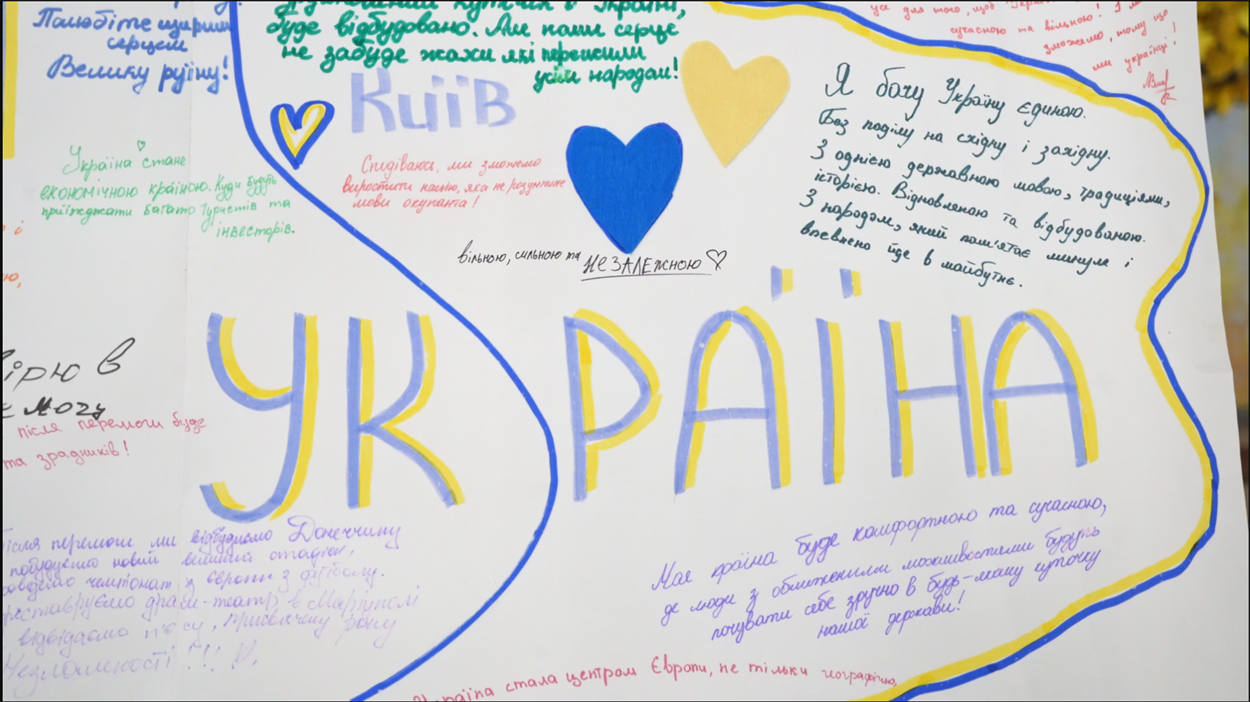 Полюбіте щирим
серцем
Велику руїну!
куточок в Україні,
буде відбудовано. Але наше серце
не забуде жахи які пережили
усім народом!
сучасною та вільною! І ми
зможемо, тому що
ми українці!
Київ
Я бачу Україну єдиною.
Без поділу на східну і західну.
З однією державною мовою, традиціями,
історією. Відновленою та відбудованою.
З народом, який пам'ятає минуле і
впевнено йде в майбутнє.
Україна стане
економічною країною. Куди будуть
приїжджати багато туристів та
інвесторів.
Сподіваюсь, ми зможемо
виростити націю, яка не розумітиме
мови окупанта!
вільною, сильною та НЕЗАЛЕжною
УКРАЇНА
вірю в
після перемоги буде
та зрадників!
Після перемоги ми відбудуємо Донеччину
побудуємо новий великий стадіон,
проведемо чемпіонат з європи з футболу.
реставруємо драм-театр в Маріуполі
відвідаємо п'єсу, присвячену
Незламності!!!
Моя країна буде комфортною та сучасною,
де люди з обмеженими можливостями будуть
почувати себе зручно в будь-якому куточку
нашої держави!
Україна стала центром Європи, не тільки географічно,